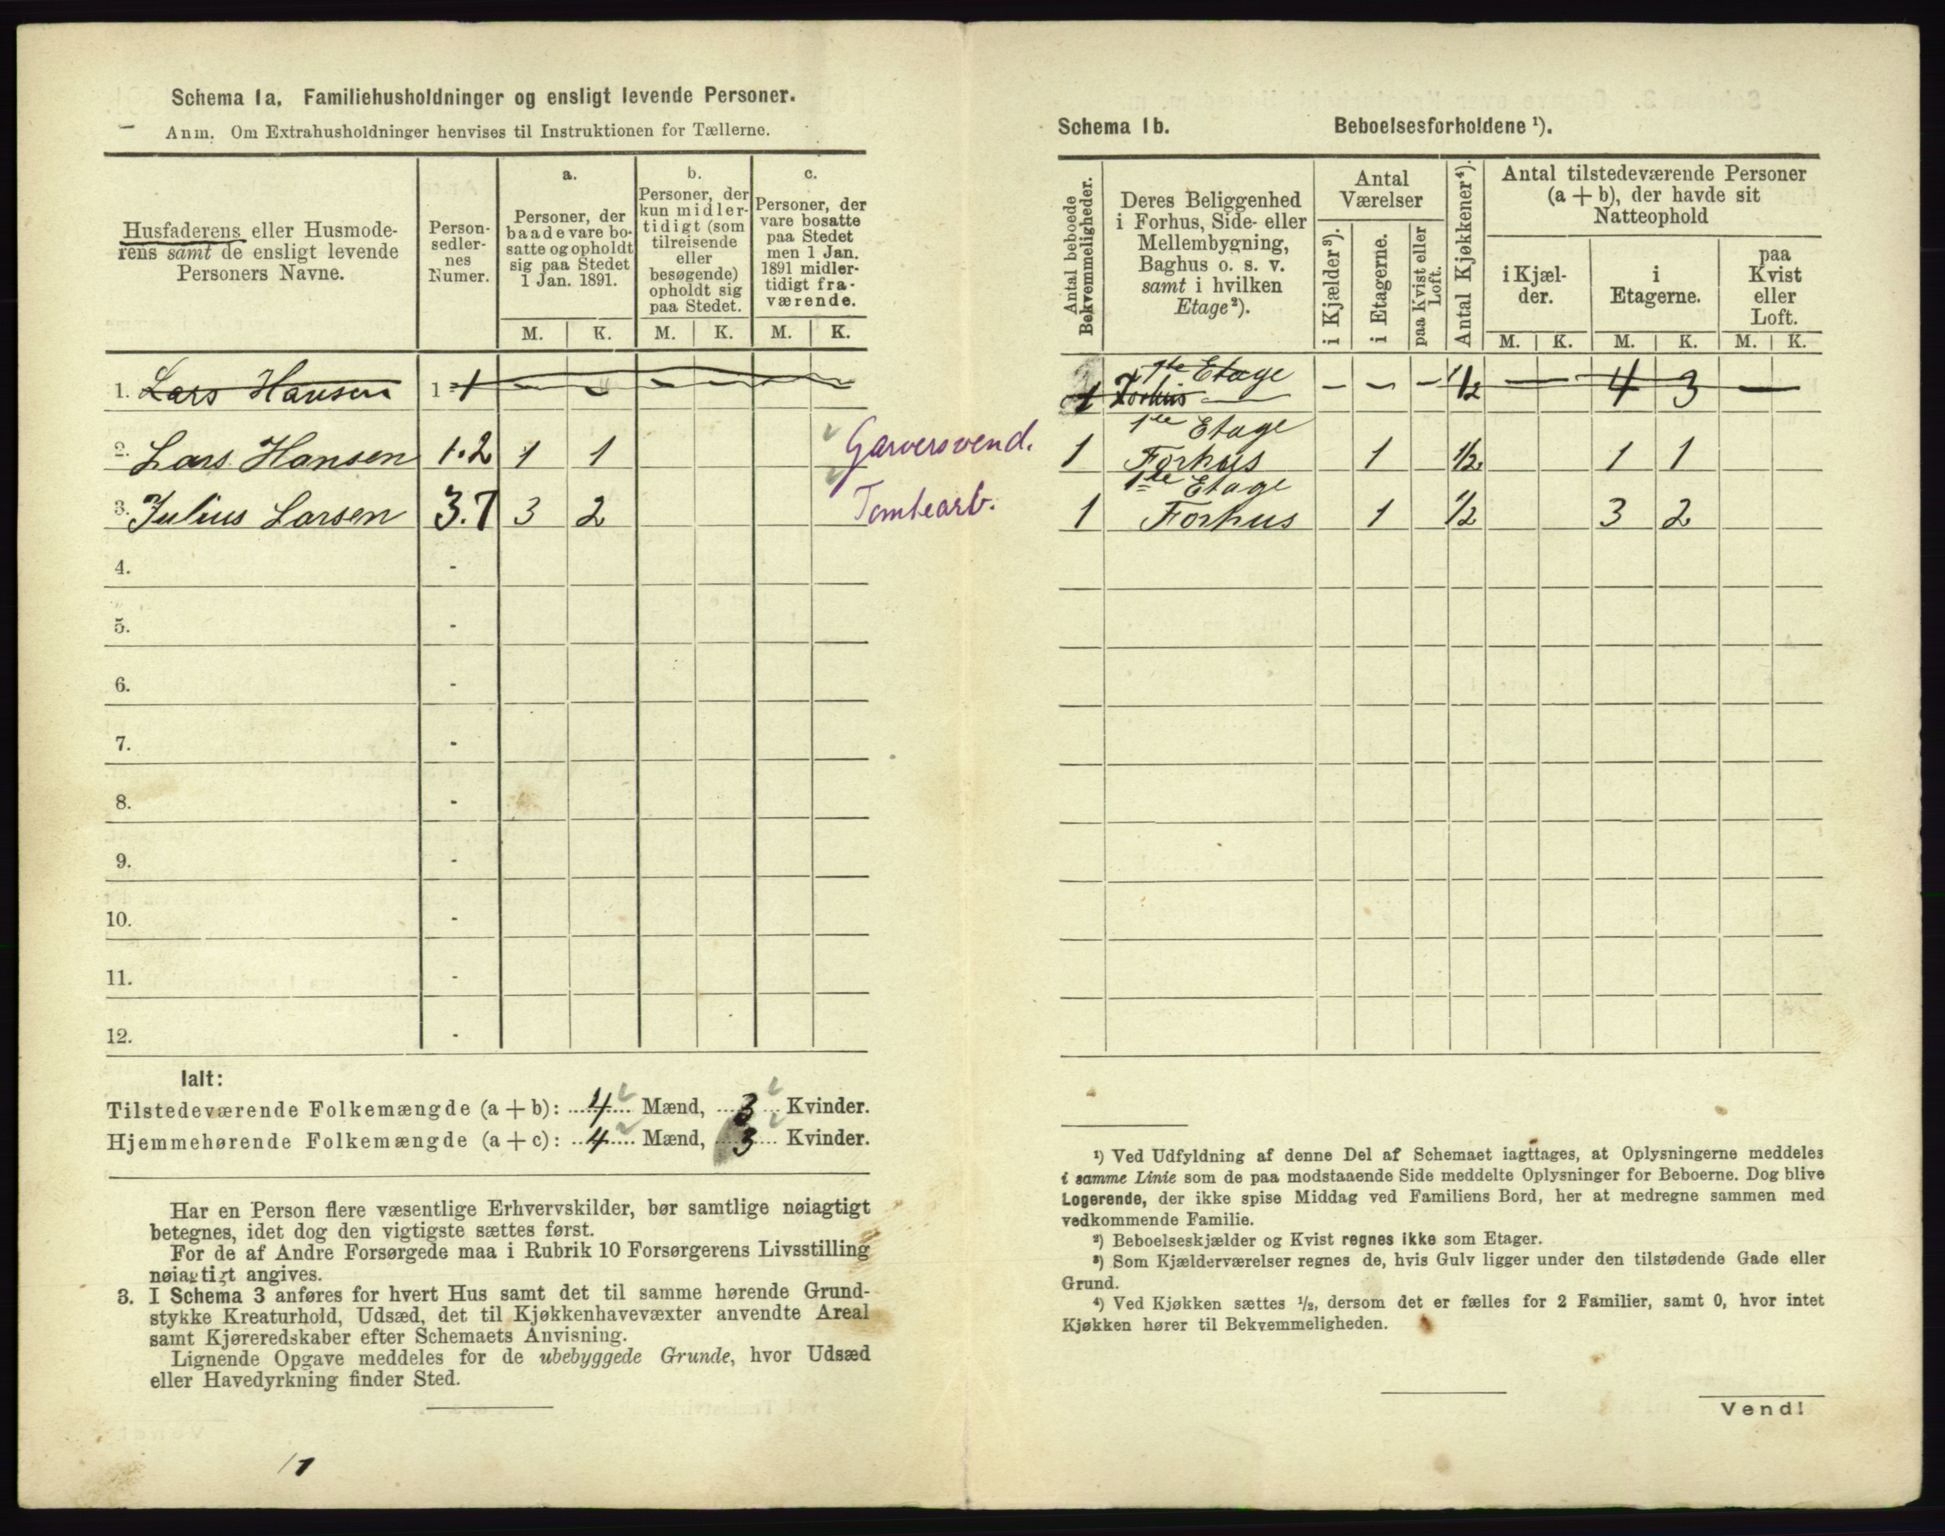 Schema 1a. Familiehusholdninger og ensligt levende Personer.
Anm. Om Extrahusholdninger henvises til Instruktionen for Tællerne.
Husfaderens eller Husmode-
rens samt de ensligt levende
Personers Navne.
Person-
sedler-
nes
Numer.
a.
Personer, der
baade vare bo-
satte og opholdt
sig paa Stedet
1 Jan. 1891.
b.
Personer, der
kun midler-
tidigt (som
tilreisende
eller
besøgende)
opholdt sig
paa Stedet.
c.
Personer, der
vare bosatte
paa Stedet
men 1 Jan.
1891 midler-
tidigt fra-
værende.
M. K. M. K. M. K.
1. Lars Hansen 1 - 1 - - - - -
2. Lars Hansen 1.2 1 1 Garversvend.
3. Julius Larsen 3.7 3 2 Tomtearb.
4. -
5. -
6. -
7. -
8. -
9. -
10. -
11. -
12. -
Ialt:
Tilstedeværende Folkemængde (a + b): 4 Mænd, 3 Kvinder.
Hjemmehørende Folkemængde (a + c): 4 Mænd, 3 Kvinder.
Har en Person flere væsentlige Erhvervskilder, bør samtlige nøiagtigt
betegnes, idet dog den vigtigste sættes først.
For de af Andre Forsørgede maa i Rubrik 10 Forsørgerens Livsstilling
nøiagtigt angives.
3. I Schema 3 anføres for hvert Hus samt det til samme hørende Grund-
stykke Kreaturhold, Udsæd, det til Kjøkkenhavevæxter anvendte Areal
samt Kjøreredskaber efter Schemaets Anvisning.
Lignende Opgave meddeles for de ubebyggede Grunde, hvor Udsæd
eller Havedyrkning finder Sted.
Schema 1b. Beboelsesforholdene ¹).
Antal beboede
Bekvemmeligheder.
Deres Beliggenhed
i Forhus, Side- eller
Mellembygning,
Baghus o. s. v.
samt i hvilken
Etage²).
Antal
Værelser
i Kjælder³).
i Etagerne.
paa Kvist eller
Loft.
Antal Kjøkkener⁴).
Antal tilstedeværende Personer
(a + b), der havde sit
Natteophold
i Kjæl-
der.
i
Etagerne.
paa
Kvist
eller
Loft.
M. K. M. K. M. K.
1ste Etage
1 Forhus - - - 1/2 - 4 3 -
1ste Etage
1 Forhus 1 1/2 1 1
1ste Etage
1 Forhus 1 1/2 3 2
¹) Ved Udfyldning af denne Del af Schemaet iagttages, at Oplysningerne meddeles
i samme Linie som de paa modstaaende Side meddelte Oplysninger for Beboerne. Dog blive
Logerende, der ikke spise Middag ved Familiens Bord, her at medregne sammen med
vedkommende Familie.
²) Beboelseskjælder og Kvist regnes ikke som Etager.
³) Som Kjælderværelser regnes de, hvis Gulv ligger under den tilstødende Gade eller
Grund.
⁴) Ved Kjøkken sættes ½, dersom det er fælles for 2 Familier, samt 0, hvor intet
Kjøkken hører til Bekvemmeligheden.
Vend!